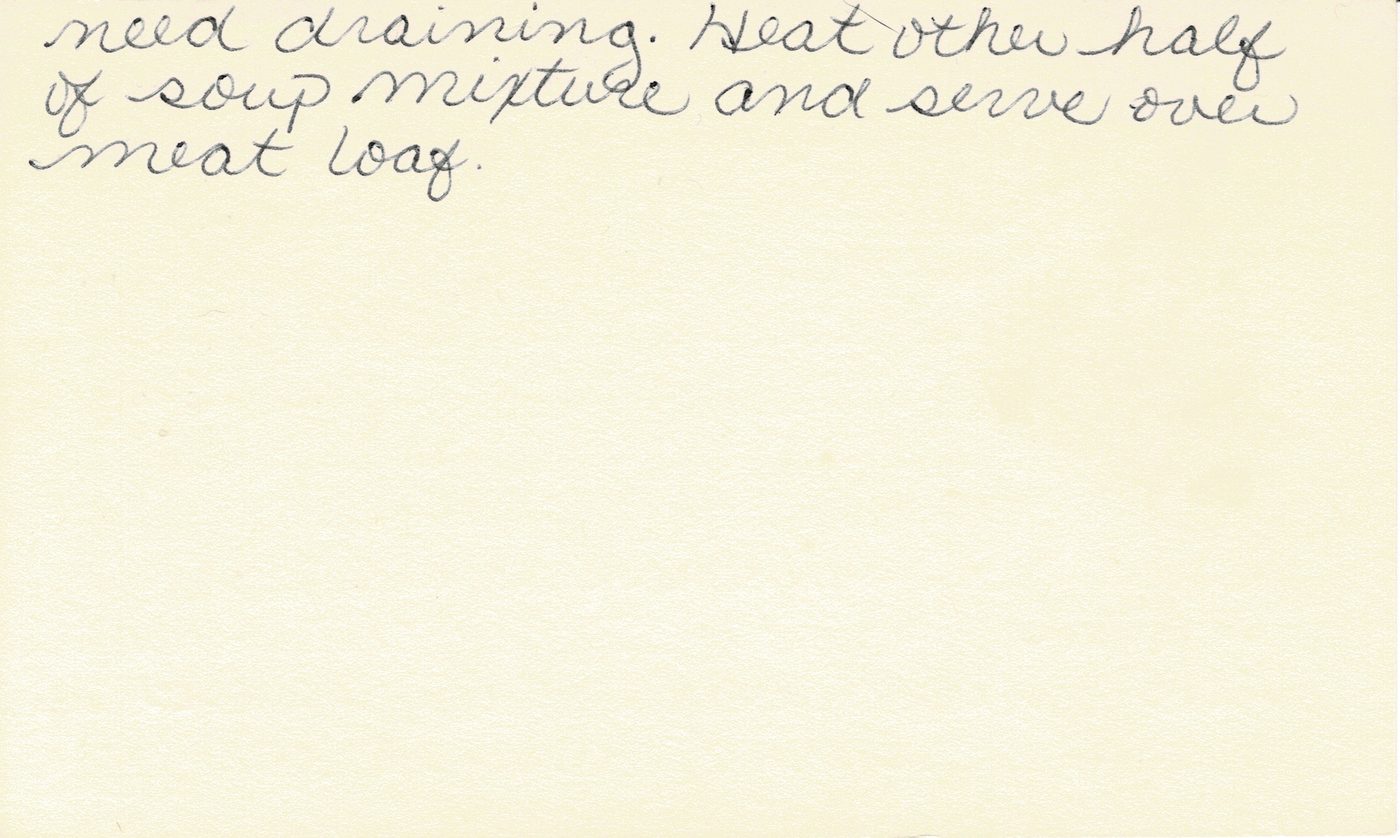 need draining. Heat other half
of soup mixture and serve over
meat loaf.